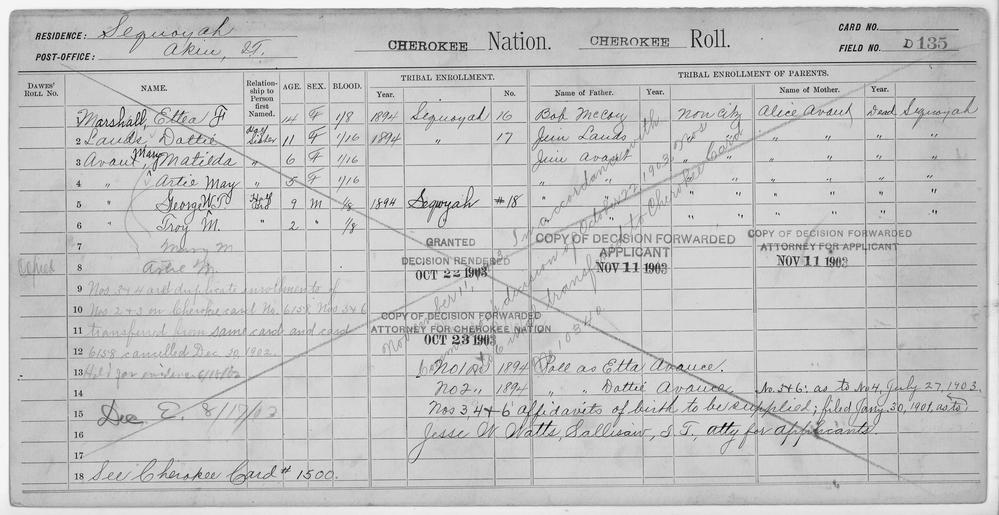 RESIDENCE: Sequoyah
POST-OFFICE: Akin, I.T.
CHEROKEE Nation. CHEROKEE Roll.
CARD NO.
FIELD NO. D 135
DAWES' ROLL NO. NAME. Relationship to Person first Named. AGE. SEX. BLOOD. TRIBAL ENROLLMENT. Year. No. TRIBAL ENROLLMENT OF PARENTS. Name of Father. Year. Name of Mother. Year.
1 Marshall, Ettea F 14 F 1/8 1894 Sequoyah 16 Bob McCoy Non Citz Alice Avant Dead Sequoyah
2 Lauds, Dottie Sister 11 F 1/16 1894 " 17 Jim Lauds " " " " "
3 Avant, Mary Matilda " 6 F 1/16 Jim Avant " " " " "
4 " Artie May " 5 F 1/16 " " " " " " "
5 " George W.T. 9 M 1/8 1894 Seqwyah #18 " " " " " " "
6 " Troy M. " 2 " 1/8 " " " " " " "
7 Mary M
8 Artie M
Copied
GRANTED
DECISION RENDERED
OCT 22 1903
COPY OF DECISION FORWARDED
APPLICANT
NOV 11 1903
COPY OF DECISION FORWARDED
ATTORNEY FOR APPLICANT
NOV 11 1903
9 Nos 3 & 4 are duplicate enrollments of
10 Nos 2 & 3 on Cherokee card No. 6158 Nos 5 & 6
11 transferred from same card and card
12 6158 cancelled Dec 30, 1902.
COPY OF DECISION FORWARDED
ATTORNEY FOR CHEROKEE NATION
OCT 23 1903
November 11, 1903 In accordance with
decision of October 22, 1903, Nos
transferred to Cherokee Card
No 10340
13 Held for evidence 6/18/02
No 1 on 1894 Roll as Etta Avance.
14 No 2 " 1894 " " Dottie Avance. No. 5 & 6: as to No 4, July 27, 1903.
15 Dec 8/17/02
Nos 3 4 & 6 affidavits of birth to be supplied; filed Jany 30, 1901, as to
16 Jesse W Watts, Sallisaw, I.T., atty for applicants.
17
18 See Cherokee Card # 1500.